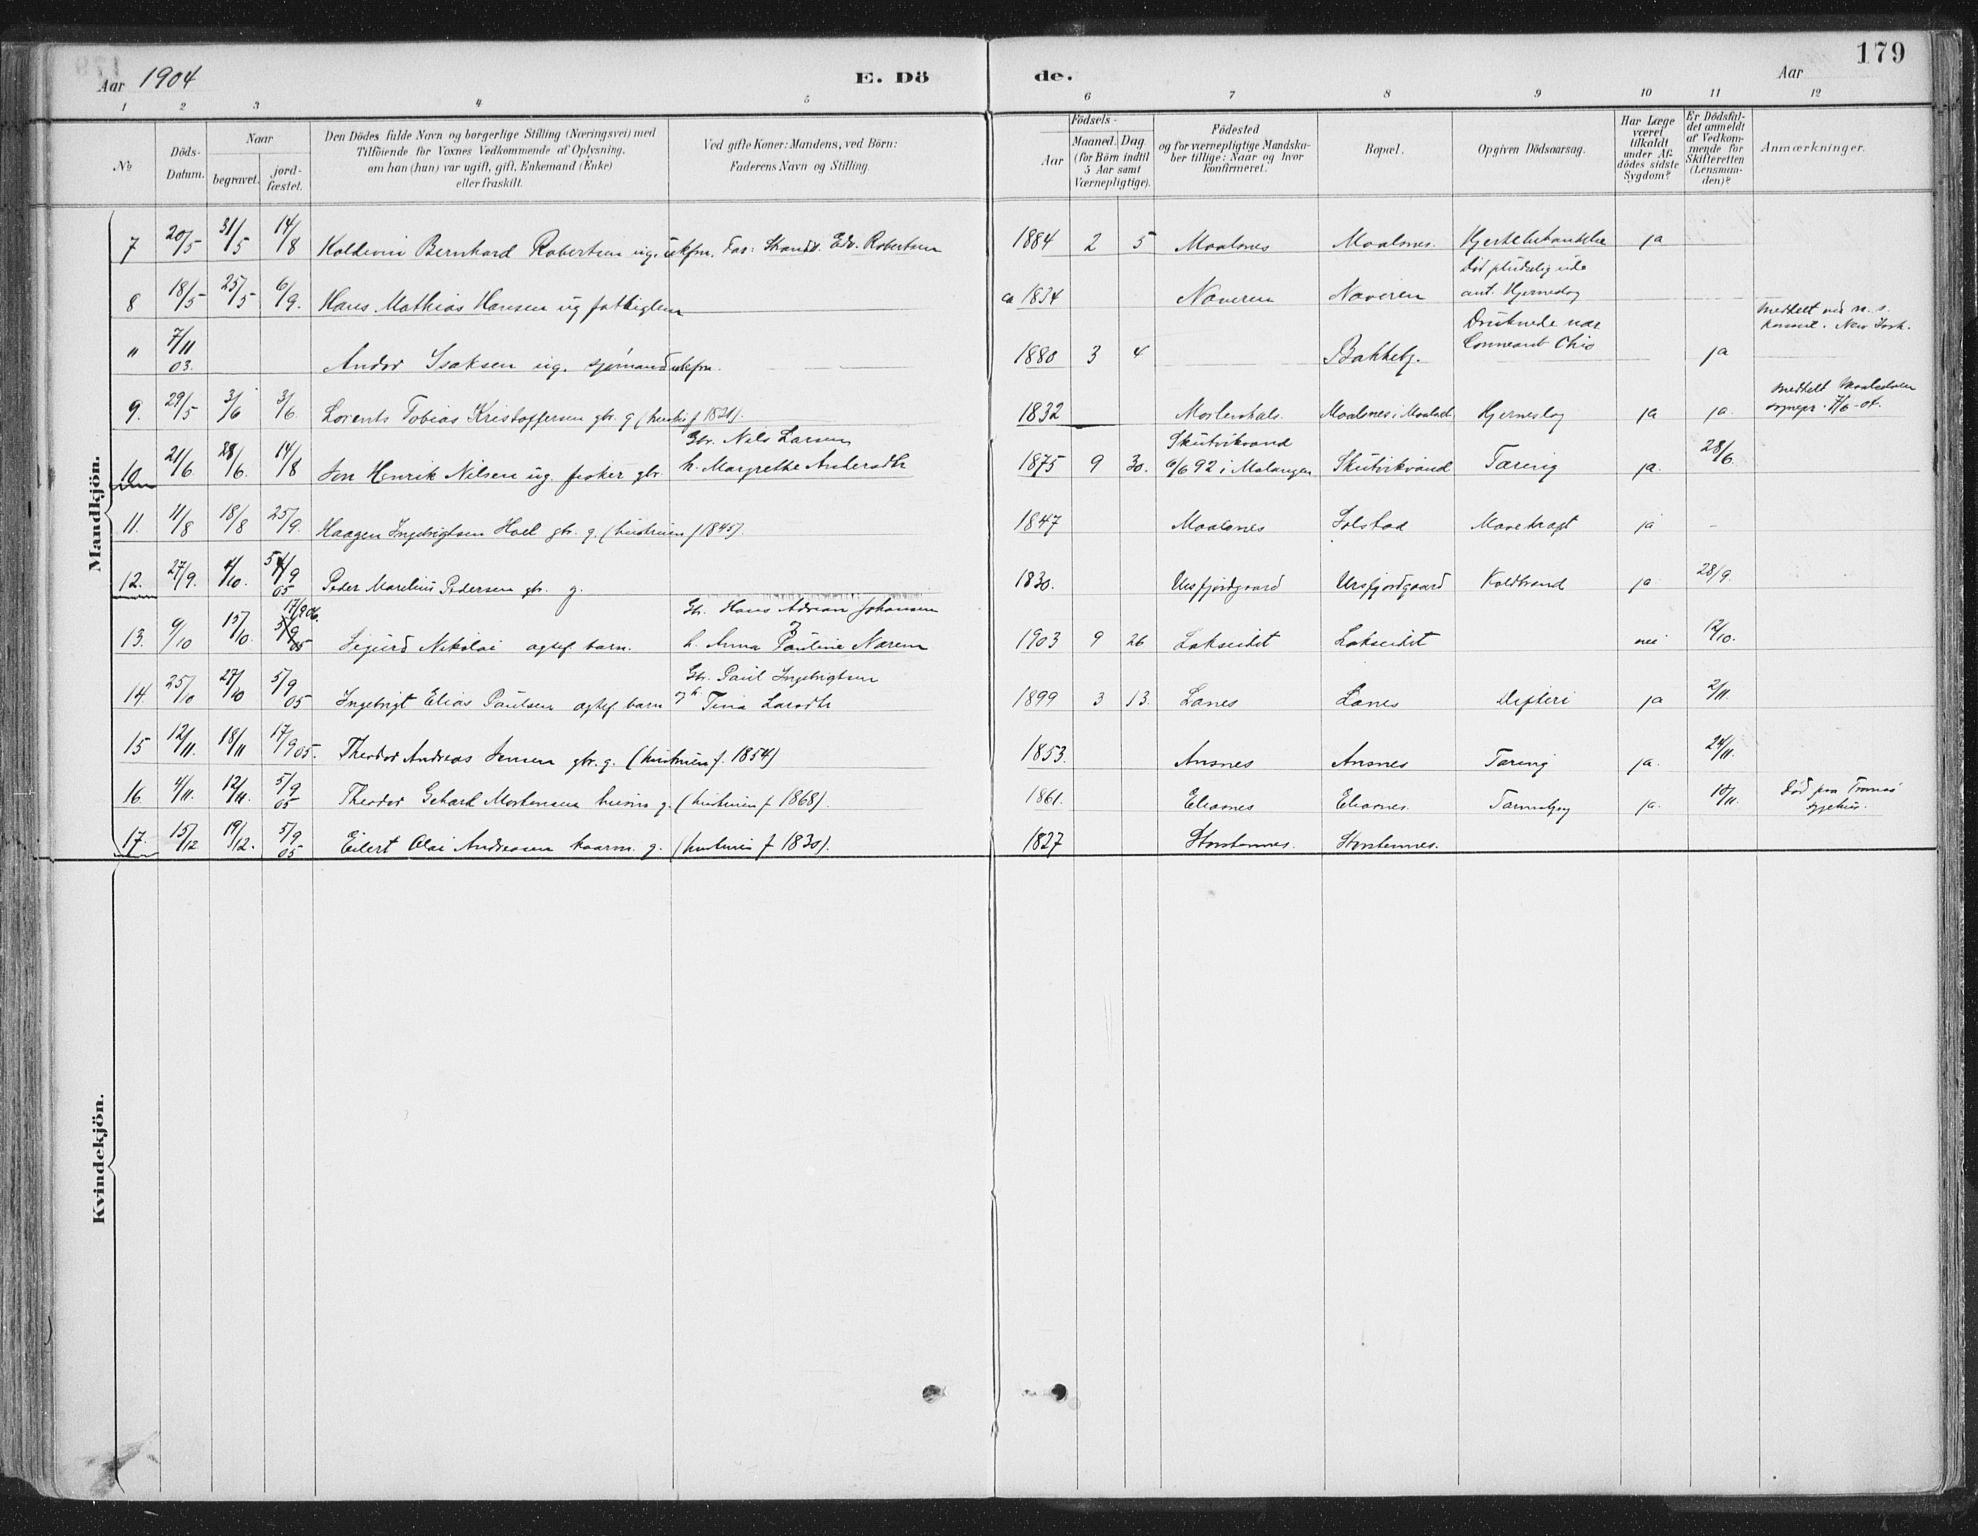 179
Aar 1904 E. Dö de. Aar
1 2 3 4 5 6 7 8 9 10 11 12
№ Döds-Datum. Naar begravet. jordfæstet. Den Dödes fulde Navn og borgerlige Stilling (Næringsvei) med Tilföiende for Voxnes Vedkommende af Oplysning, om han (hun) var ugift, gift, Enkemand (Enke) eller fraskilt. Ved gifte Koner: Mandens, ved Börn: Faderens Navn og Stilling. Födsels- Aar Maaned. Dag (for Börn indtil 5 Aar samt Værnepligtige). Födested og for værnepligtige Mandskaber tillige: Naar og hvor konfirmeret. Bopæl. Opgiven Dödsaarsag. Har Læge været tilkaldt under Afdödes sidste Sygdom? Er Dödsfaldet anmeldt af Vedkommende for Skifteretten (Lensmanden)? Anmærkninger.
Mandkjön.
7 20/5 31/5 14/8 Koldevin Bernhard Robertsen ug. Far: Strands. Edv. Robertsen 1884 2 5 Maalsnes Maalsnes. ja
8 18/5 25/5 6/9. Hans Mathias Hansen ug fattiglem ca 1834 Naveren Naveren Död pludselig ude ant. Hjerneslag
" 7/11 03. Andor Isaksen ug. sjømand 1880 3 4 Bakkebg. Druknede nær Conneaut Ohio ja Meddelt ved n. s. konsul. New York.
9. 29/5 3/6 3/6 Lorents Tobias Kristoffersen gbr. g (hustru f 1820). 1832 Mortenhals. Maalsnes i Maalsel. Hjerneslag ja ja. meddelt Maalselven sognepr. 7/6-04.
10 21/6 28/6. 14/8 Jon Henrik Nilsen ug. fisker gbr. Gbr. Nils Larsen h. Margrethe Andersdtr 1875 9 30. Skutvikvand 6/6 92 i Malangen Skutvikvand Tæring ja. 28/6.
11. 11/8 18/8 25/9. Haagen Ingebrigtsen Hoel gbr. g. (hustruen f 1845). 1847 Maalsnes Solstad Mavekræft ja -
12. 27/9. 4/10. 5/9 05 Peder Marelius Pedersen gbr. g. 1830. Ursfjordgaard Ursfjordgaard Koldbrand ja 28/9.
13. 9/10 15/10. 17/9 06. 5/9 05 Sigurd Nikolai agtef barn. Gbr. Hans Adrian Johansen h. Anna Pauline Næren 1903 9 26 Lakseidet Lakseidet nei 12/10.
14. 25/10 27/10 5/9 05 Ingebrigt Elias Paulsen agtef barn Gbr. Paul Ingebrigtsen og h Tina Larsdtr 1899 3 13. Lanes Lanes Difteri ja 2/11.
15 12/11. 18/11 17/9 05. Theodor Andreas Jensen gbr. g. (hustruen f. 1854) 1853. Ansnes Ansnes Tæring ja. 24/11.
16. 4/11. 12/11. 5/9 05 Theodor Gehard Mortensen husm g. (hustruen f 1868). 1861. Elvenes Elvenes. ja. 10/11. Död paa Tromsö sygehus.
17. 15/12 19/12. 5/9 05 Eilert Olai Andreasen kaarm. g. (hustruen f 1830). 1827 Storstennes. Storstennes.
Kvindekjön.